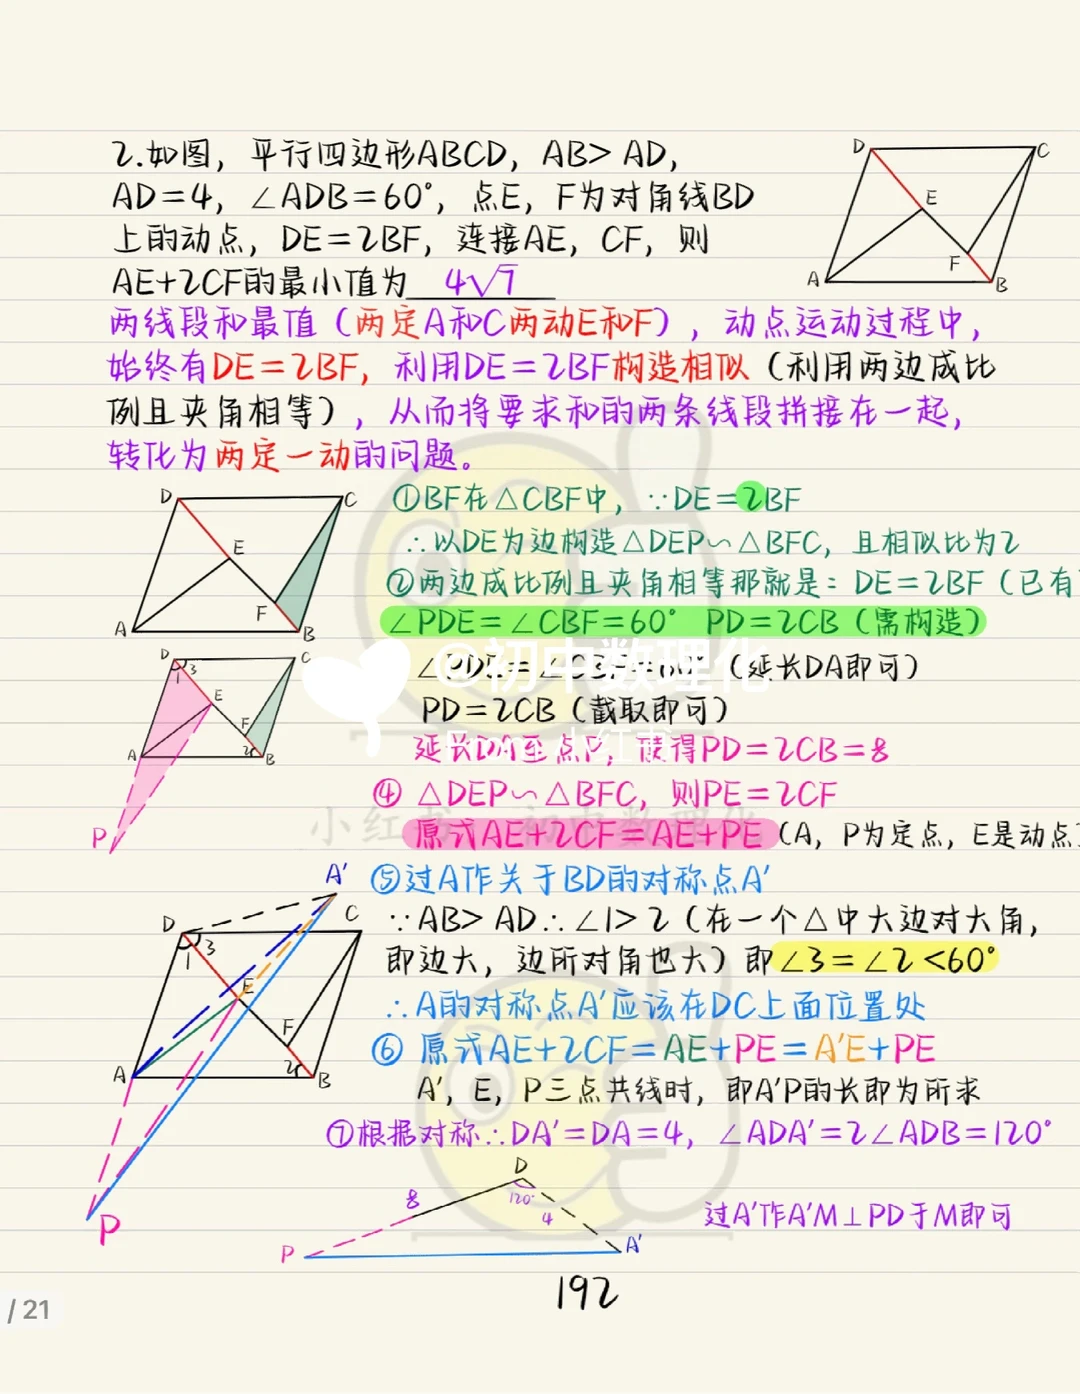 2.如图，平行四边形ABCD，AB>AD，
AD=4，∠ADB=60°，点E，F为对角线BD
上的动点，DE=2BF，连接AE，CF，则
AE+2CF的最小值为 4√7
两线段和最值（两定A和C两动E和F），动点运动过程中，
始终有DE=2BF，利用DE=2BF构造相似（利用两边成比
例且夹角相等），从而将要求和的两条线段拼接在一起，
转化为两定一动的问题。
D
C
E
F
A
B
①BF在△CBF中，∵DE=2BF
∴以DE为边构造△DEP∽△BFC，且相似比为2
②两边成比例且夹角相等那就是：DE=2BF（已有
∠PDE=∠CBF=60° PD=2CB（需构造）
D
C
E
F
A
B
∠PDE=∠CBF=60°（延长DA即可）
PD=2CB（截取即可）
延长DA至点P，使得PD=2CB=8
④ △DEP∽△BFC，则PE=2CF
原式AE+2CF=AE+PE（A，P为定点，E是动点
D
C
1
3
E
F
2
A
B
P
@初中数理化
小红书
⑤过A作关于BD的对称点A'
∵AB>AD∴∠1>2（在一个△中大边对大角，
即边大，边所对角也大）即∠3=∠2<60°
∴A的对称点A'应该在DC上面位置处
⑥ 原式AE+2CF=AE+PE=A'E+PE
A'，E，P三点共线时，即A'P的长即为所求
⑦根据对称∴DA'=DA=4，∠ADA'=2∠ADB=120°
A'
D
C
1
3
E
F
2
A
B
P
D
8
120°
4
P
A'
过A'作A'M⊥PD于M即可
192
/ 21